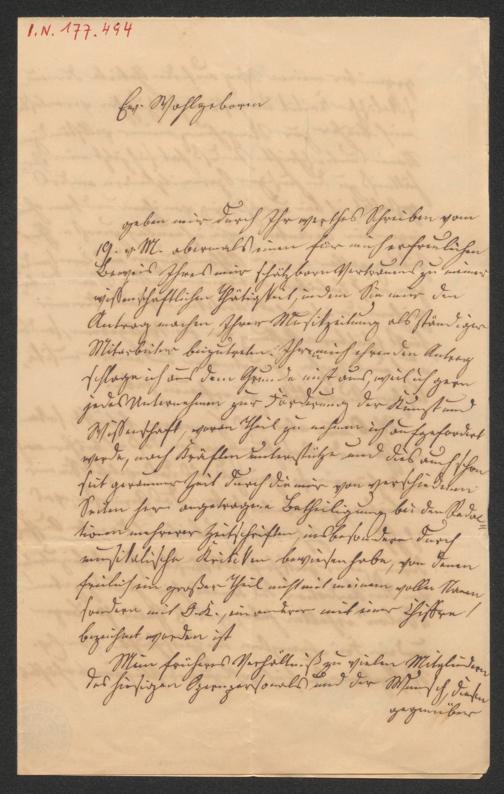 I.N. 177.494
Ew. Wohlgeboren
geben mir durch Ihr werthes Schreiben vom
19. v. M. abermals einen für mich erfreulichen
Beweis Ihres mir schätzbaren Vertrauens zu meiner
wissenschaftlichen Thätigkeit, indem Sie mir den
Antrag machen, Ihrer Musikzeitung als ständiger
Mitarbeiter beizutreten. Ihren mich ehrenden Antrag
schlage ich aus dem Grunde nicht aus, weil ich gern
jedes Unternehmen zur Förderung der Kunst und
Wissenschaft, woran Theil zu nehmen ich aufgefordert
werde, nach Kräften unterstütze und dies auch schon
seit geraumer Zeit durch die mir von verschiedenen
Seiten her angetragene Betheiligung bei den Redac
tionen mehrerer Zeitschriften, insbesondere durch
musikalische Kritiken bewiesen habe, von denen
freilich ein großer Theil nicht mit meinem vollen Namen
sondern mit D. K., ein anderer mit einer Chiffre
bezeichnet worden ist
Mein früheres Verhältniß zu vielen Mitgliedern
des hiesigen Opernpersonals und der Wunsch, diesen
gegenüber